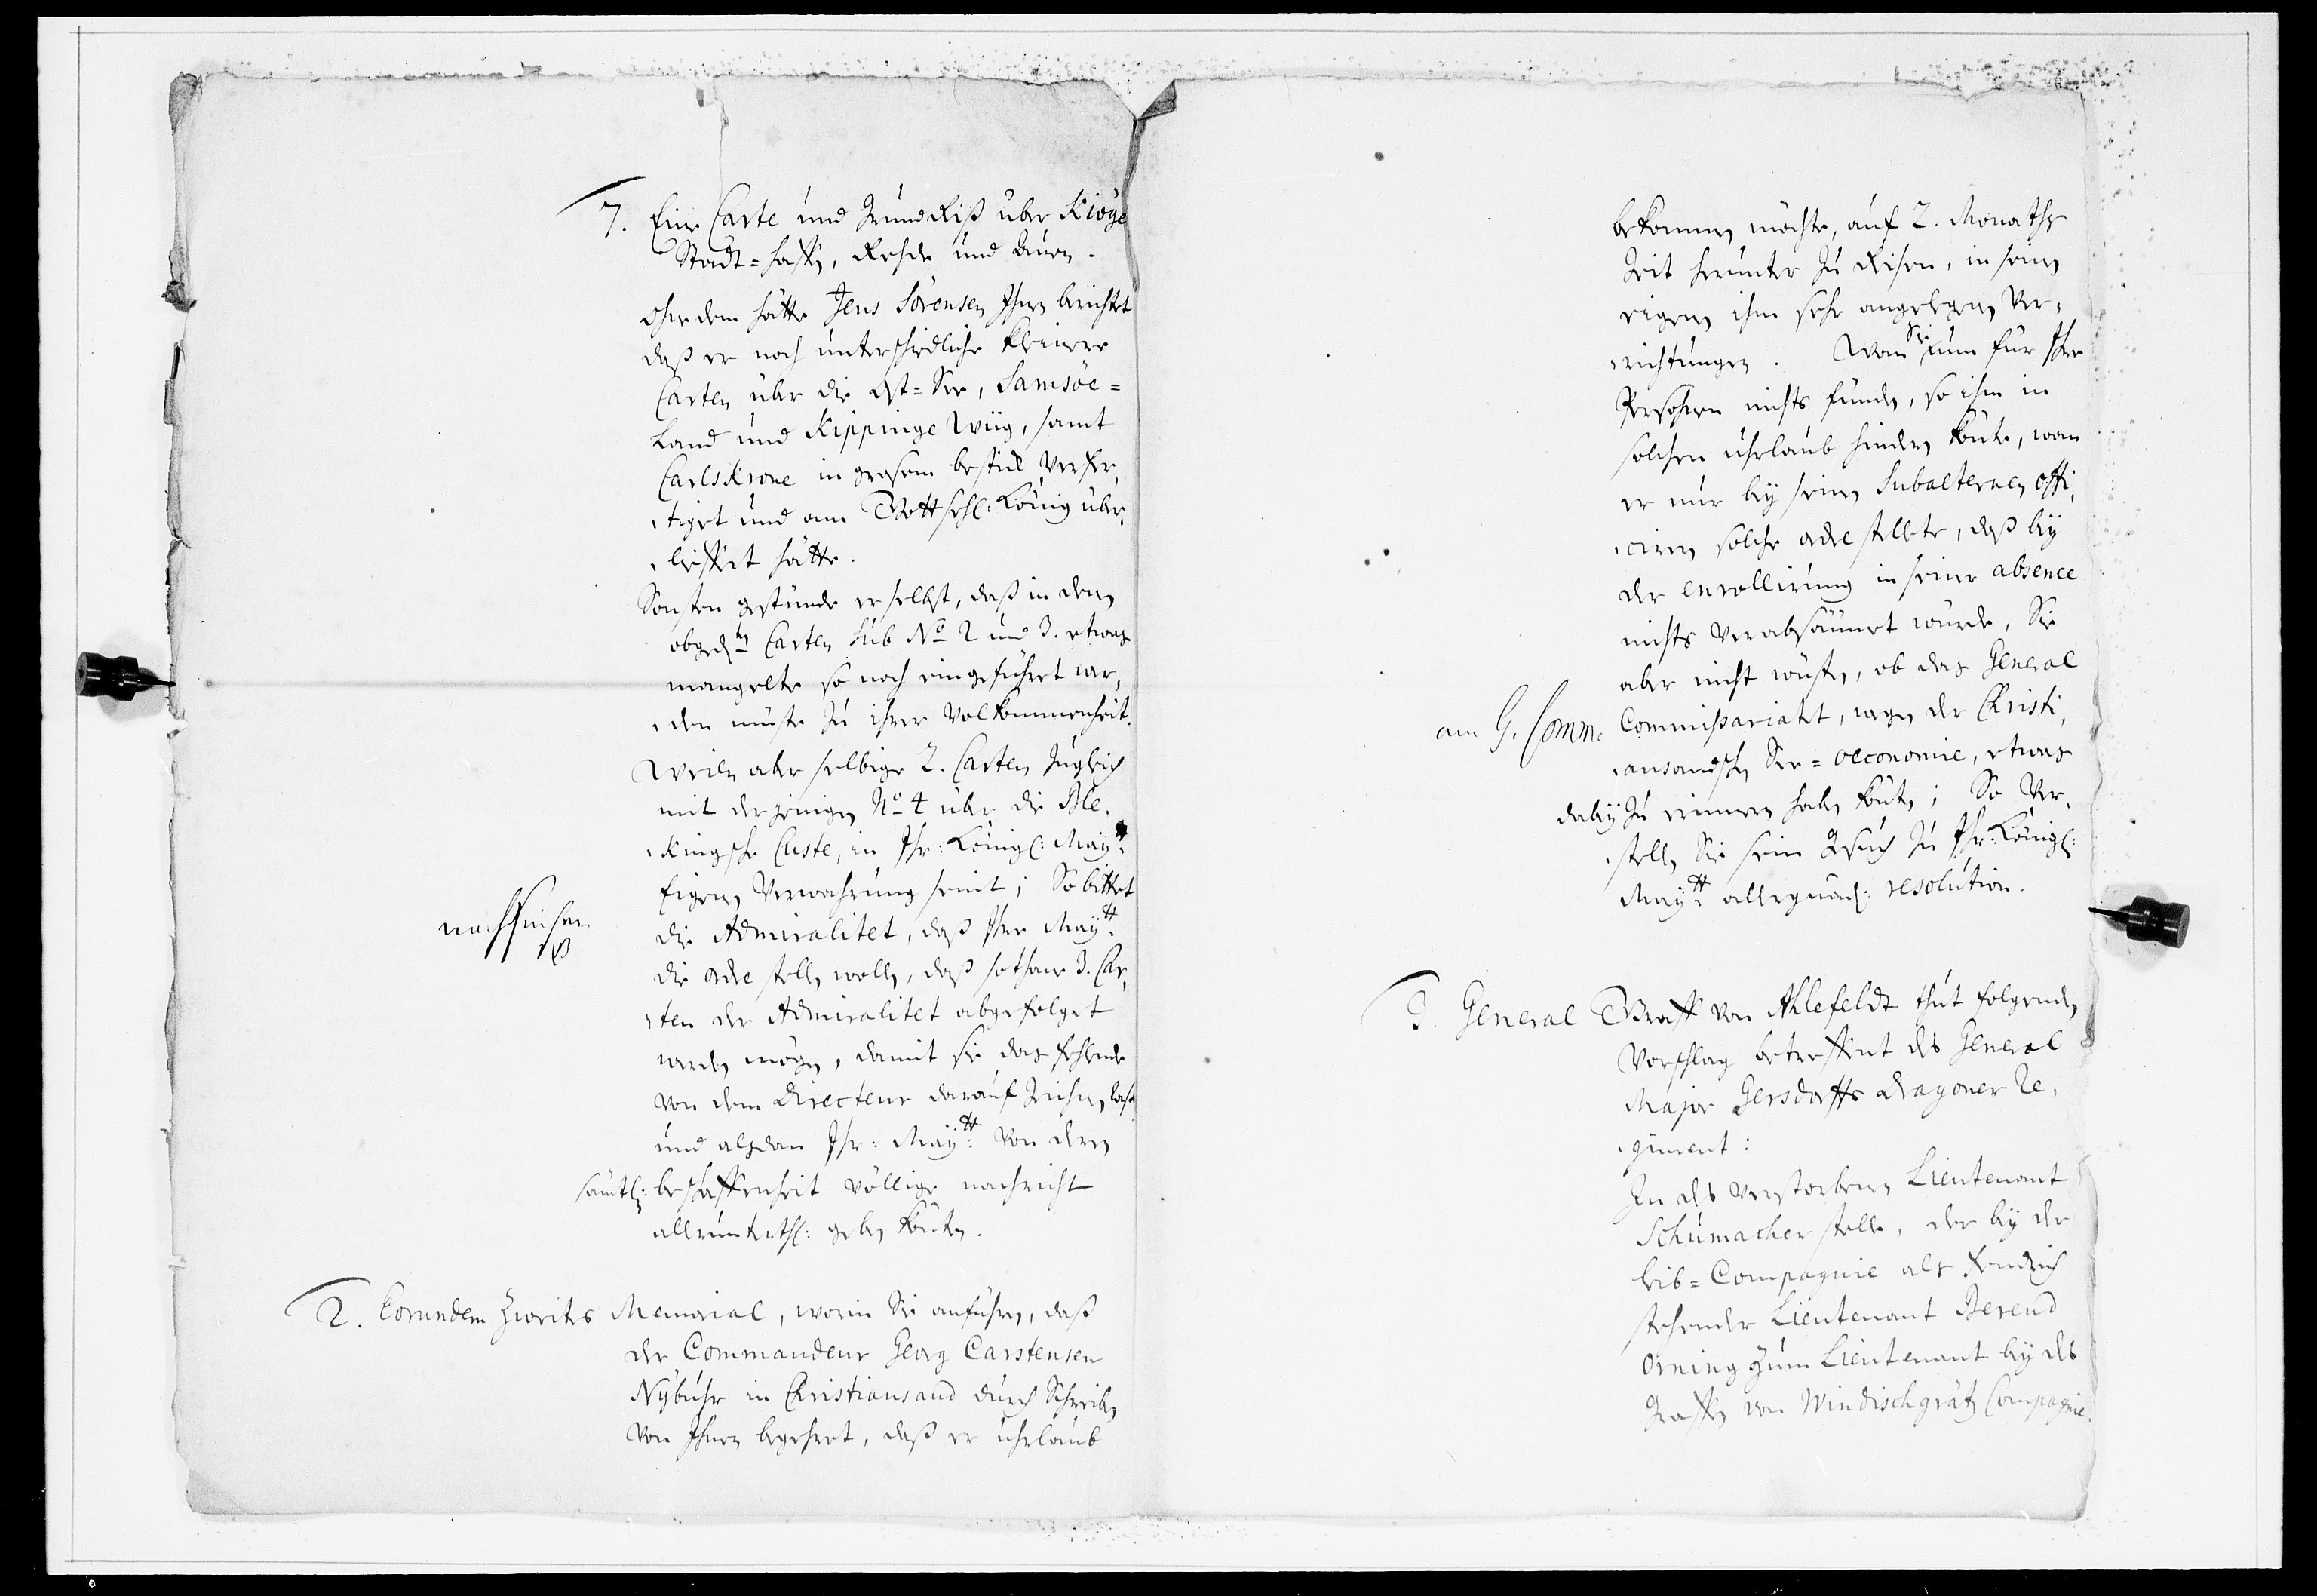 7. Eine Carte und Grund Riß über Kiöge
Stadt=haffen, Rehde und Duen.
Ohne dem hätte Jens Sörensen Ihnen berichtet
daß er noch unterschiedliche kleinere
Carten über die Ost=See, Samsöe=
Land und Kippinge Wiig, samt
CarlsKrone in grosem bestick verfer-
tiget und am Gottseel: König über-
lieffert hätte.
Sonsten gestünde er selbst, daß in denen
obgedn Carten sub No 2 und 3. etwas
mangelte so noch eingeführet wer-
den müste zu ihrer Volkommenheit.
Weilen aber selbige 2. Carten zugleich
mit derjenigen No 4 über die Ble-
kingsche Custe, in Ihr: Königl: Maytt:
Eigenen Verwahrung seint; So bittet
die Admiralitet, daß Ihre Maytt:
nachsuchen
die ordre stellen wollen, daß sothane 3. Car-
ten der Admiralitet abgefolget
werden mögen, damit sie das fehlende
von dem Directeur darauf Zeichnen lassen
und alsdan Ihr: Maytt: von deren
sämtl: beschaffenheit völlige nachricht
allerunterth: geben könten.
2. Eorundem Zweites Memorial, worin Sie anführen, daß
der Commandeur Georg Carstensen
Nÿbuhr in Christiansand durch Schreiben
von Ihnen begehret, daß er uhrlaub
bekommen möchte, auf 2. Monaths
Zeit herunter zu Reisen, in seinen
eigenen ihm sehr angelegenen Ver-
richtungen. Wan Sie nun für Ihre
Persohnen nichts funden, so ihm in
solchen uhrlaub hindern könte, wan
er nur beÿ seinen Subalternen Offi-
cirern solche ordre stellete, daß beÿ
der enrollirung in seiner absence
nichts verabsäumet würde, Sie
aber nicht wüsten, ob das General
am G. Comm. Commissariaht, wegen der Christi-
ansandschen See=oeconomie, etwas
dabeÿ zu erinnern haben könte; So ver-
stellen Sie sein Gesuch zu Ihr: Königl:
Maytt: allergnäd: resolution.
3. General Graff von Ahlefeldt thut folgenden
Vorschlag betreffent des General
Major Gersdorffs Dragoner Re-
giment:
In des verstorbenen Lieutenant
Schumacher stelle, der beÿ der
Leib=Compagnie als Fendrich
stehender Lieutenant Berend
Orning zum Lieutenant beÿ des
Graffen von Windischgrätz Compagnie.